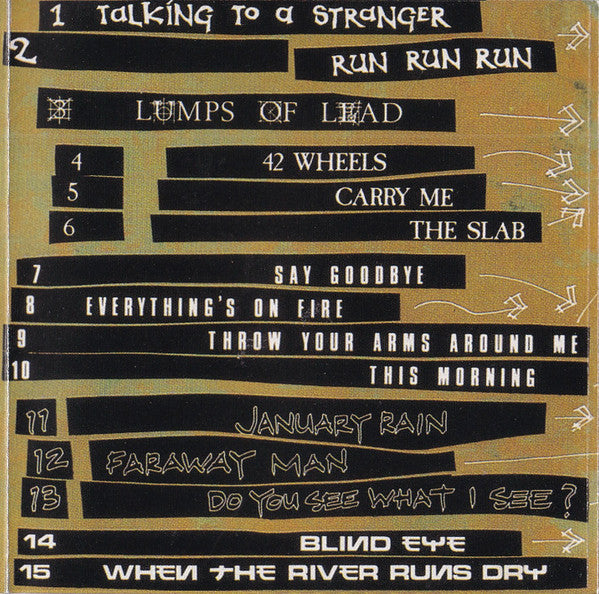 1 TALKING TO A STRANGER
2 RUN RUN RUN
3 LUMPS OF LEAD
4 42 WHEELS
5 CARRY ME
6 THE SLAB
7 SAY GOODBYE
8 EVERYTHING'S ON FIRE
9 THROW YOUR ARMS AROUND ME
10 THIS MORNING
11 JANUARY RAIN
12 FARAWAY MAN
13 DO YOU SEE WHAT I SEE?
14 BLIND EYE
15 WHEN THE RIVER RUNS DRY